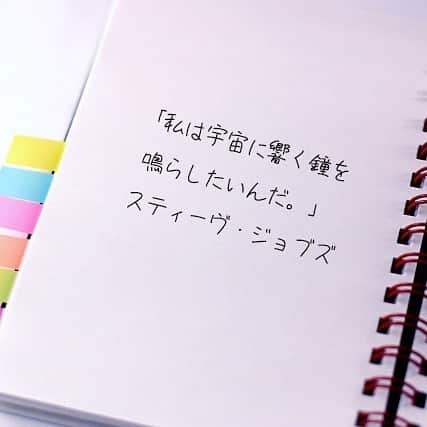 「私は宇宙に響く鐘を
鳴らしたいんだ。」
スティーヴ・ジョブズ